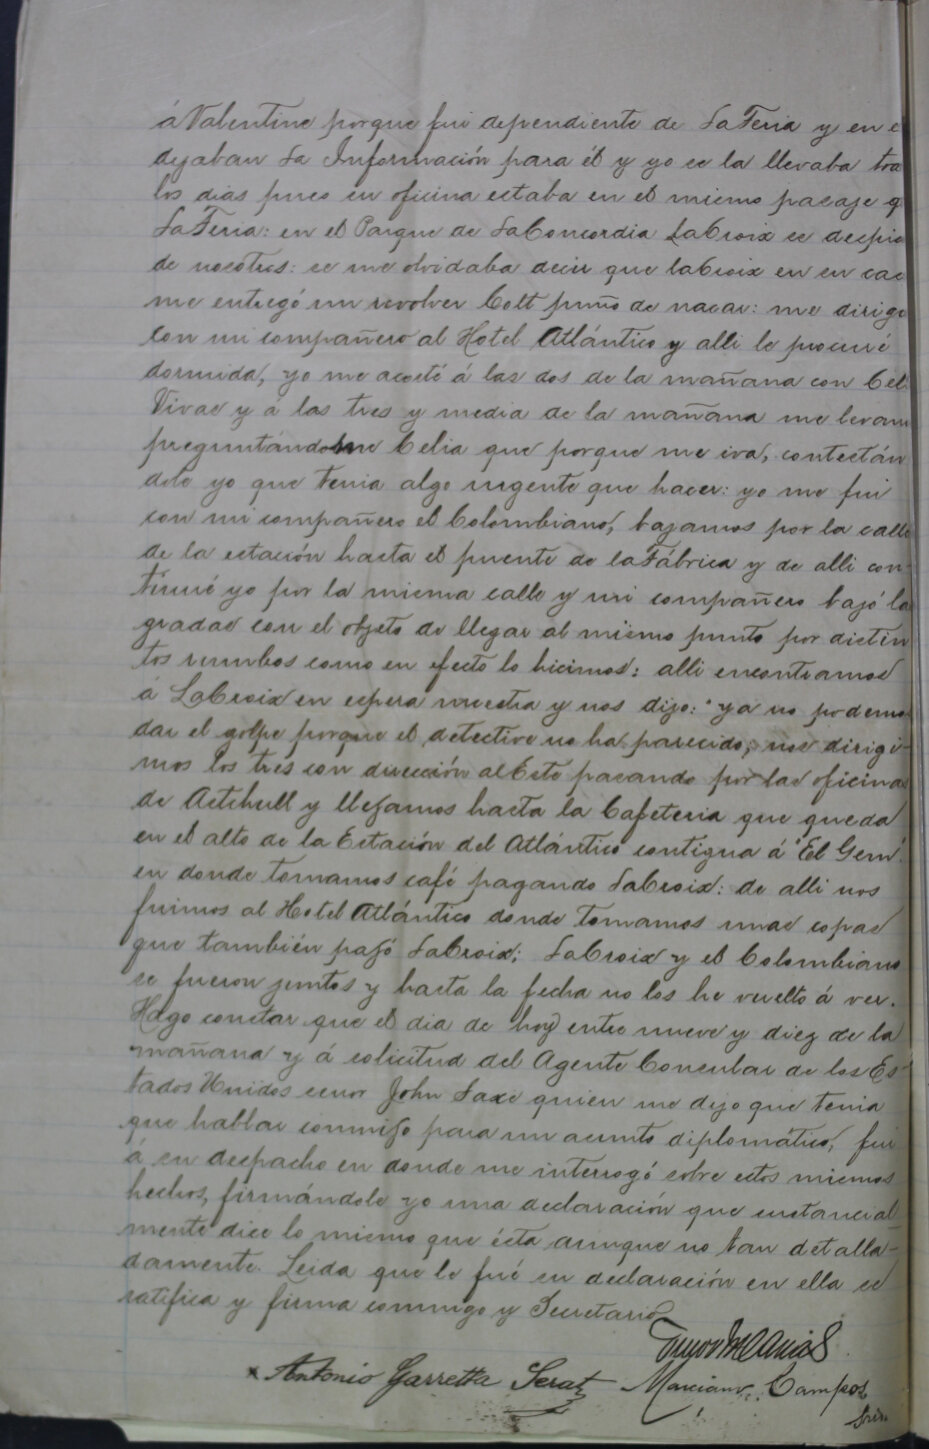 á Valentine porque fui dependiente de La Feria y en e
dejaban La Información para él y yo se la llevaba tod
los dias pues su oficina estaba en el mismo pasaje q
La Feria: en el Parque de La Concordia LaCroix se despid
de nosotros: se me olvidaba decir que LaCroix en su cas
me entregó un revolver Colt puño de nacar: me dirigi
con mi compañero al Hotel Atlántico y alli le procuré
dormida, yo me acosté á las dos de la mañana con Cel
Vivas y a las tres y media de la mañana me levan
preguntándome Celia que porque me iva, contestán
dole yo que tenia algo urgente que hacer: yo me fui
con mi compañero el Colombiano, bajamos por la calle
de la estación hasta el puente de la Fábrica y de alli con-
tinué yo por la misma calle y mi compañero bajó la
gradas con el objeto de llegar al mismo punto por distin
tos rumbos como en efecto lo hicimos: alli encontramos
á LaCroix en espera nuestra y nos dijo: "ya no podemos
dar el golpe porque el detective no ha parecido, nos dirigi-
mos los tres con dirección al Este pasando por las oficinas
de Aetchull y llegamos hasta la Cafeteria que queda
en el alto de la Estación del Atlántico contigua á "El Gem"
en donde tomamos café pagando LaCroix: de alli nos
fuimos al Hotel Atlántico donde tomamos unas copas
que también pagó LaCroix; LaCroix y el Colombiano
se fueron juntos y hasta la fecha no los he vuelto á ver.
Hago constar que el dia de hoy entre nueve y diez de la
mañana y á solicitud del Agente Consular de los Es-
tados Unidos senor John Saxe quien me dijo que tenia
que hablar conmigo para un asunto diplomático, fui
á su despacho en donde me interrogó sobre estos mismos
hechos, firmándole yo una declaración que sustancial-
mente dice lo mismo que ésta aunque no tan detalla-
damente. Leida que le fué su declaración en ella se
ratifica y firma conmigo y Secretario
Antonio Garretta Serat Marciano Campos
Srio.